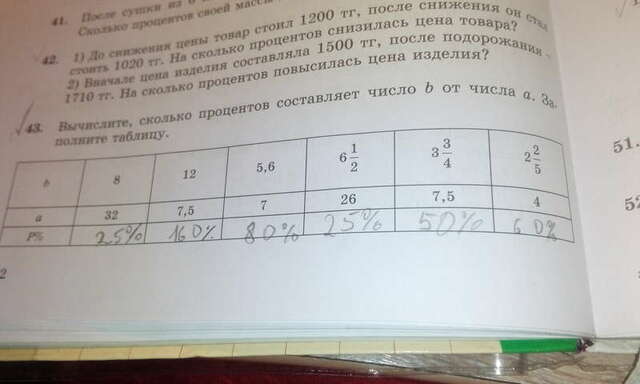 41. После сушки из 6
Сколько процентов своей массы
42. 1) До снижения цены товар стоил 1200 тг, после снижения он стал
стоить 1020 тг. На сколько процентов снизилась цена товара?
2) Вначале цена изделия составляла 1500 тг, после подорожания -
1710 тг. На сколько процентов повысилась цена изделия?
43. Вычислите, сколько процентов составляет число b от числа a. За-
полните таблицу.
b 8 12 5,6 6 1/2 3 3/4 2 2/5
a 32 7,5 7 26 7,5 4
P% 25% 160% 80% 25% 50% 60%
51.
52
2